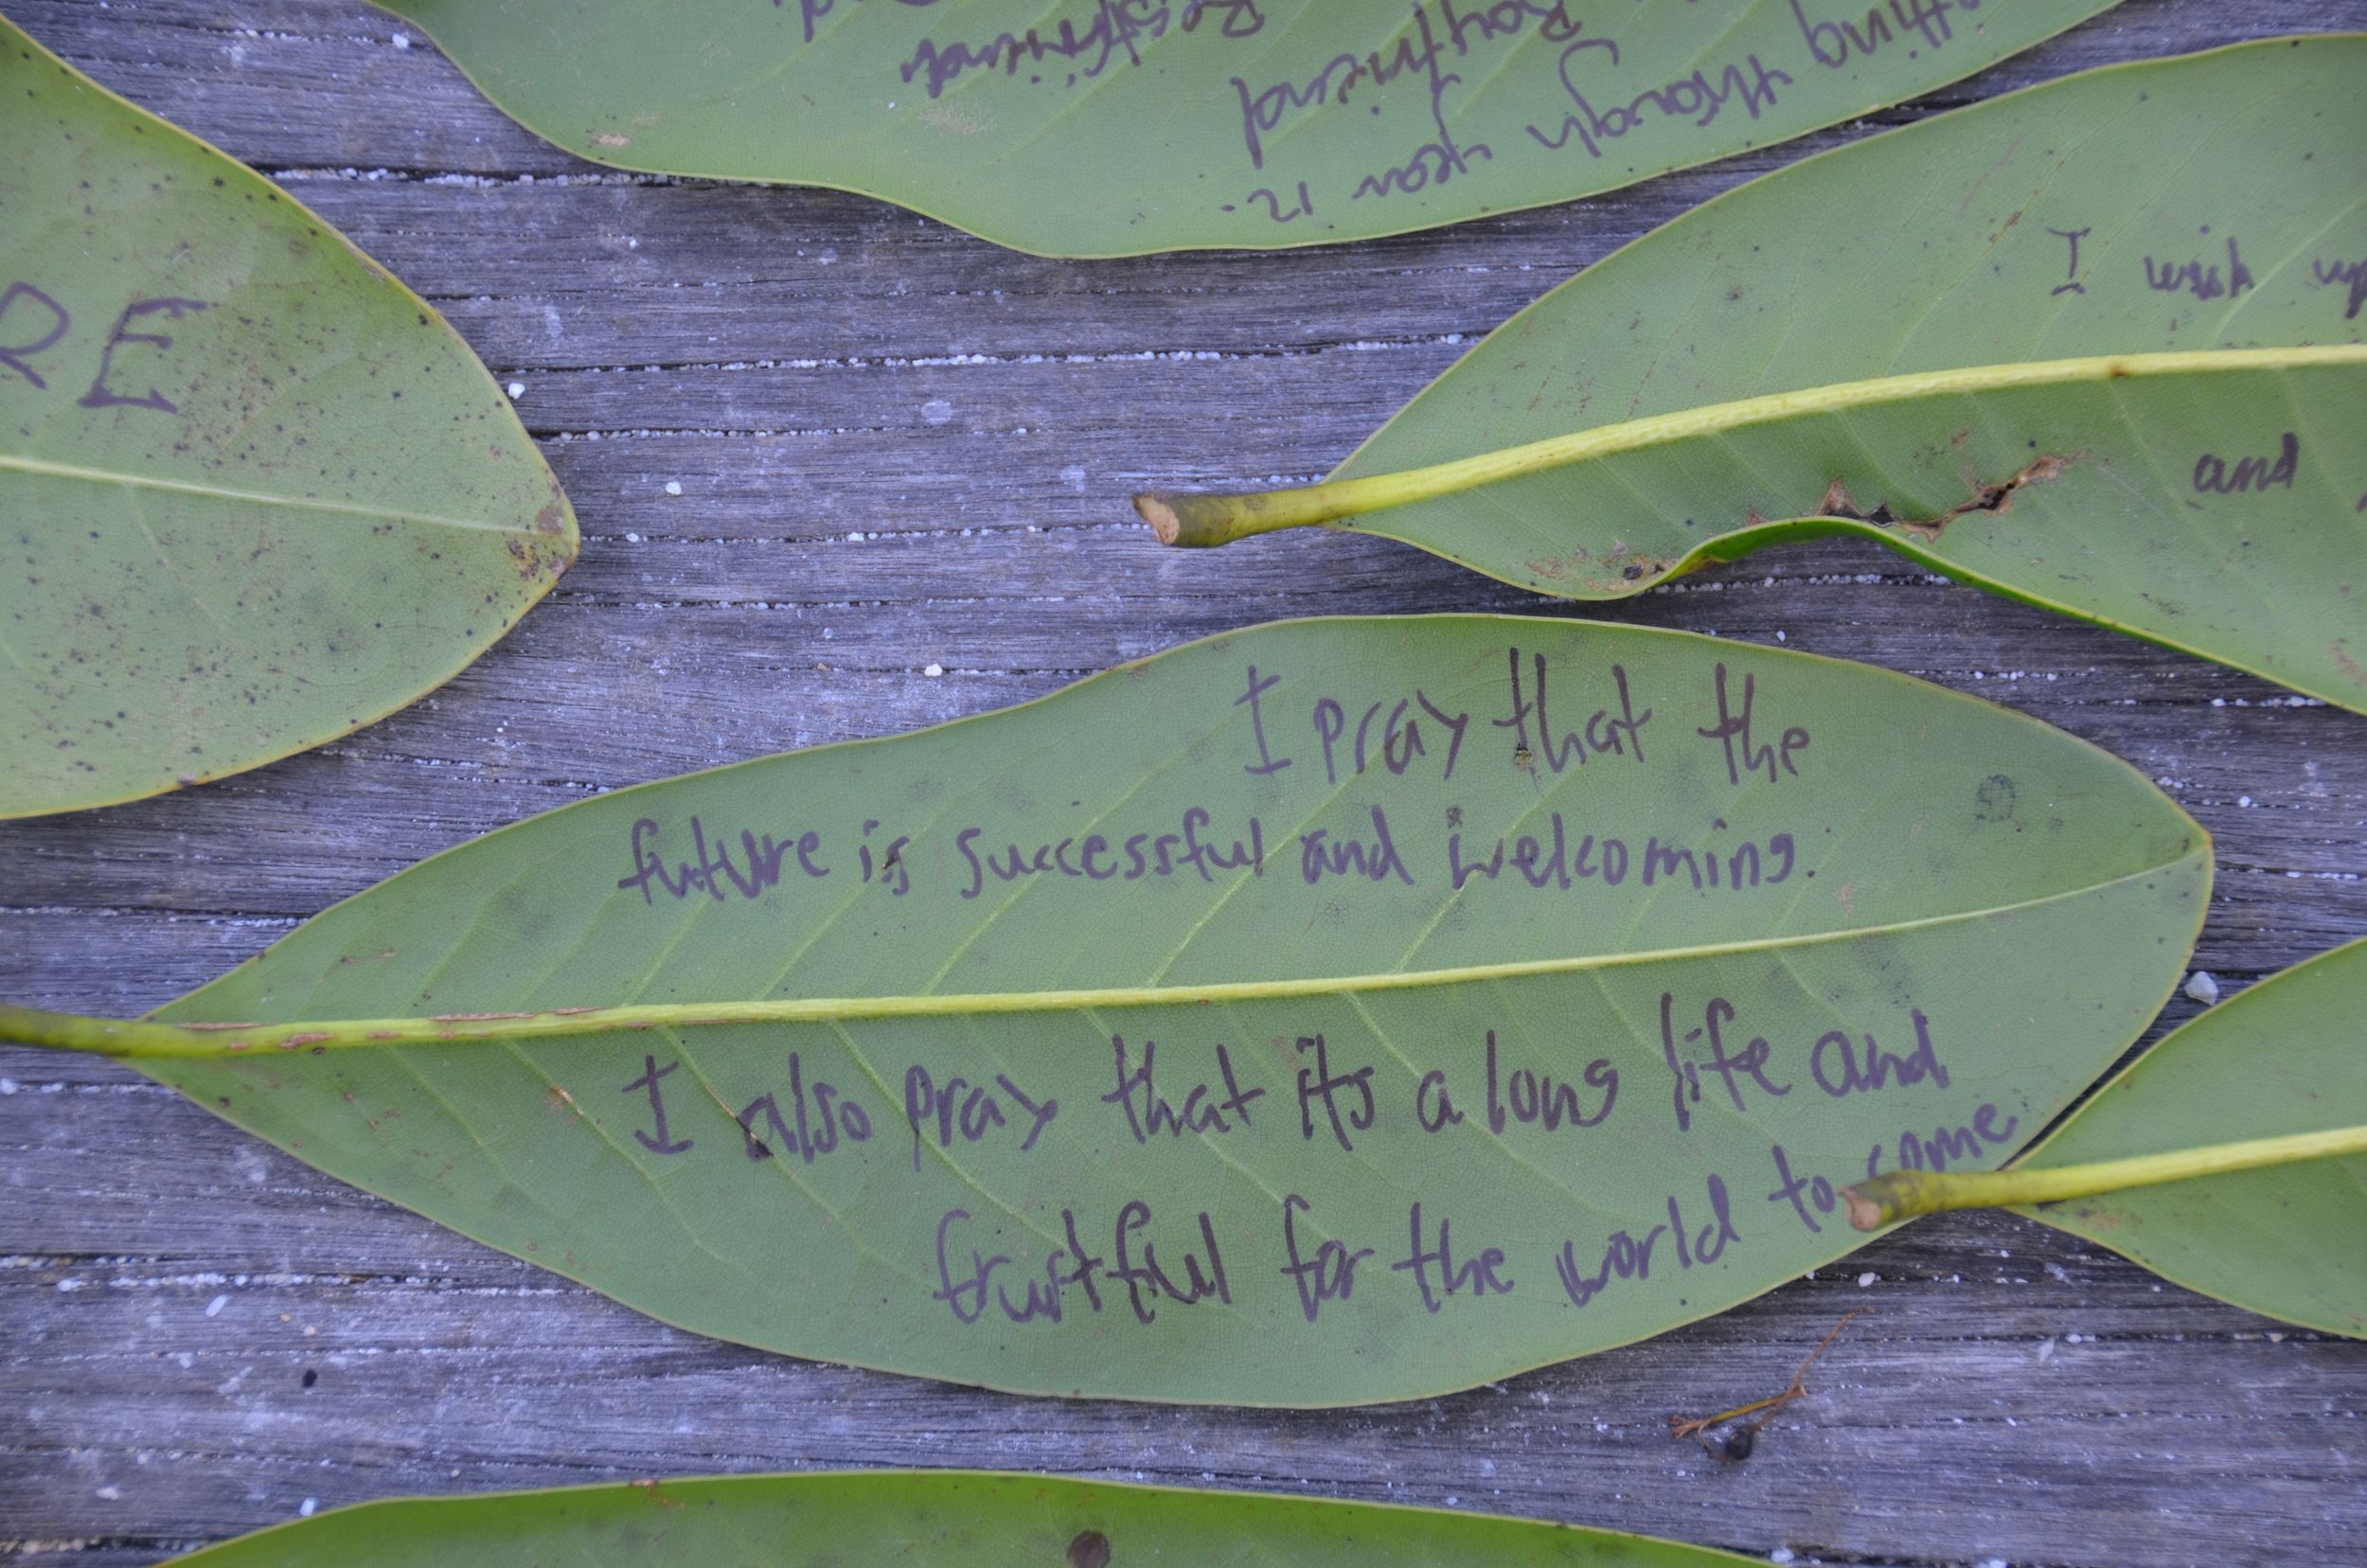 thing through year 12.
Boyfriend
Bestfriend
RE
I wish
and
I pray that the
future is successful and welcoming.
I also pray that its a long life and
fruitful for the world to come